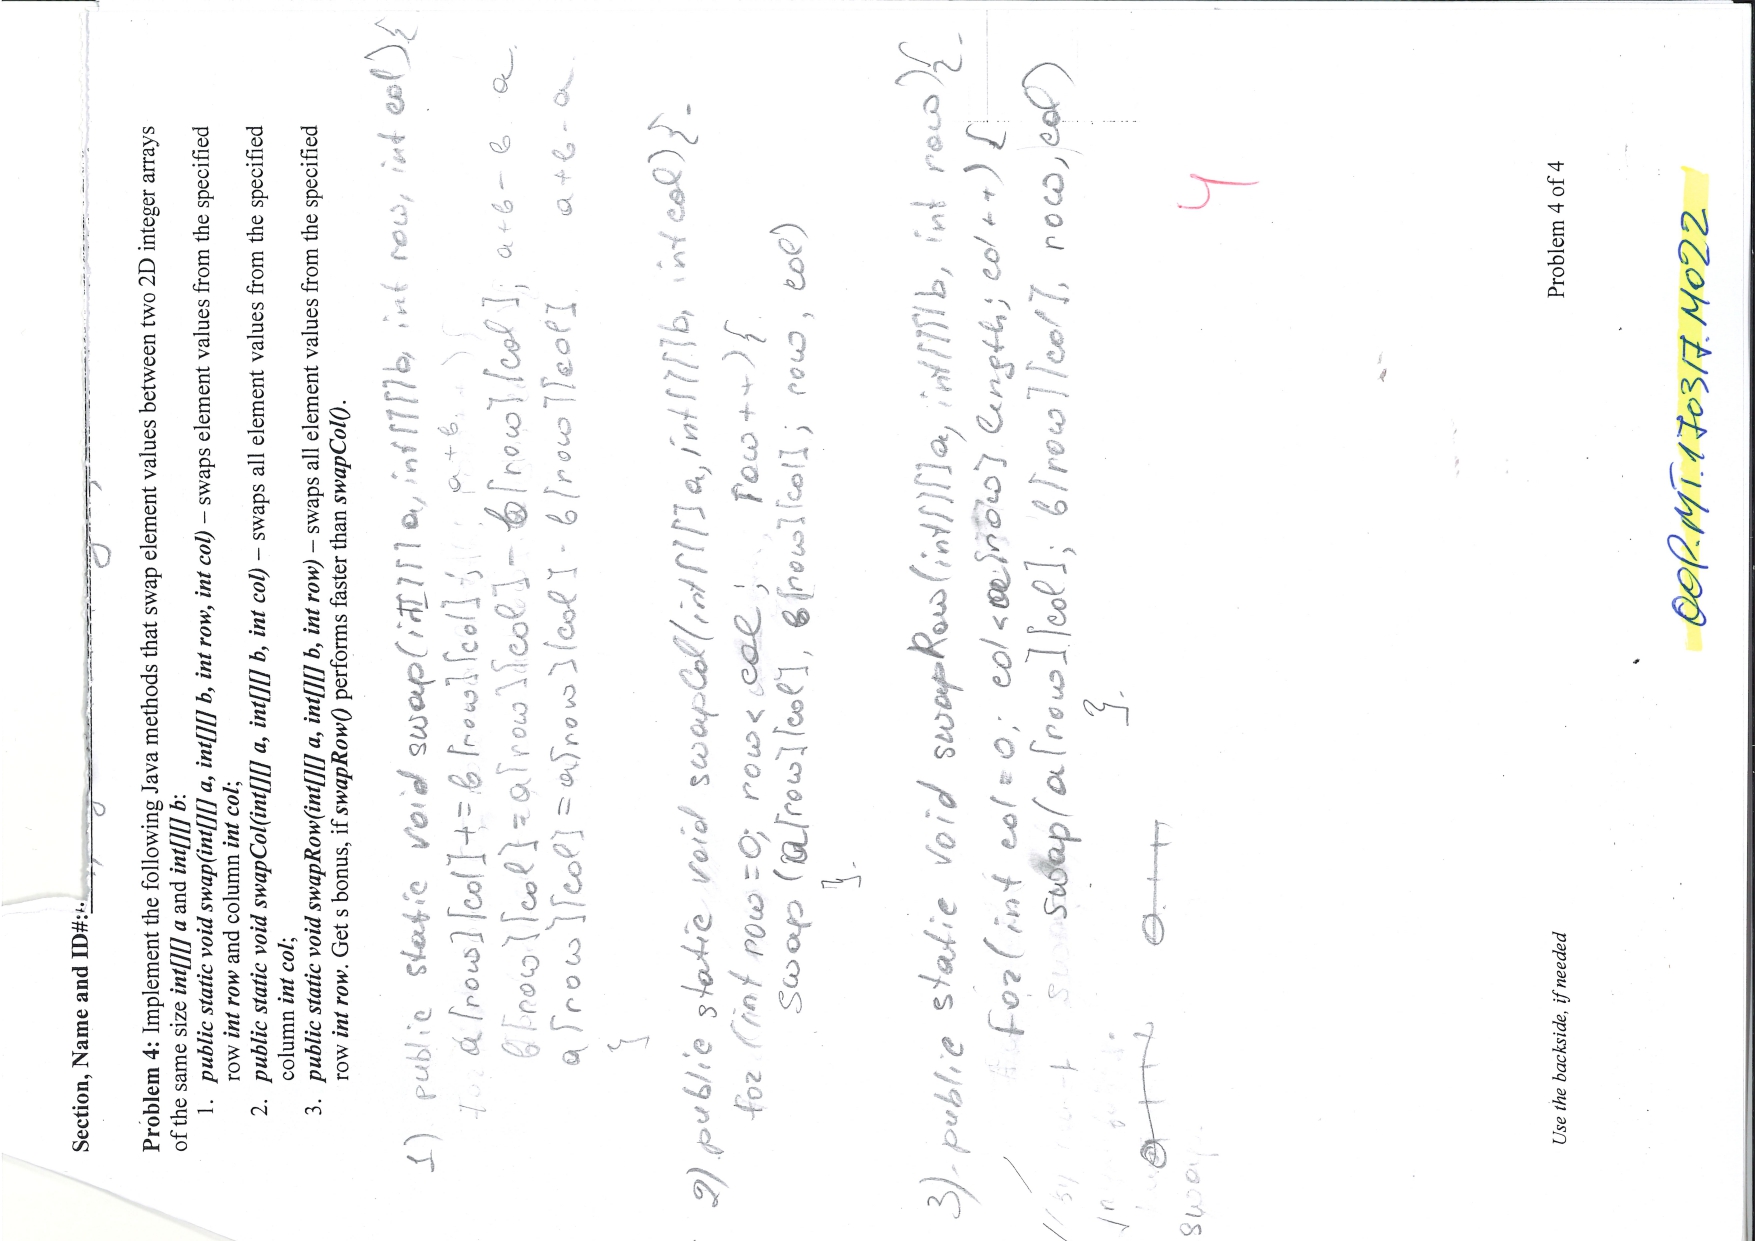 Section, Name and ID#:
Problem 4: Implement the following Java methods that swap element values between two 2D integer arrays
of the same size int[][] a and int[][] b:
1. public static void swap(int[][] a, int[][] b, int row, int col) – swaps element values from the specified
row int row and column int col;
2. public static void swapCol(int[][] a, int[][] b, int col) – swaps all element values from the specified
column int col;
3. public static void swapRow(int[][] a, int[][] b, int row) – swaps all element values from the specified
row int row. Get s bonus, if swapRow() performs faster than swapCol().
1) public static void swap(int[][] a, int[][]b, int row, int col){
a[row][col]+=b[row][col]; a+b
b[row][col]=a[row][col]-b[row][col]; a+b-b a
a[row][col]=a[row][col]-b[row][col] a+b-a
}
2) public static void swapCol(int[][] a, int[][]b, int col){
for (int row=0; row< col; row++){
swap (a[row][col], b[row][col]; row, col)
}
3) public static void swapRow(int[][]a, int[][]b, int row){
for(int col=0; col<a[row] length; col++) {
swap(a[row][col]; b[row][col], row, col)
}
swap
4
Use the backside, if needed
Problem 4 of 4
OOP.MT.170317.M022